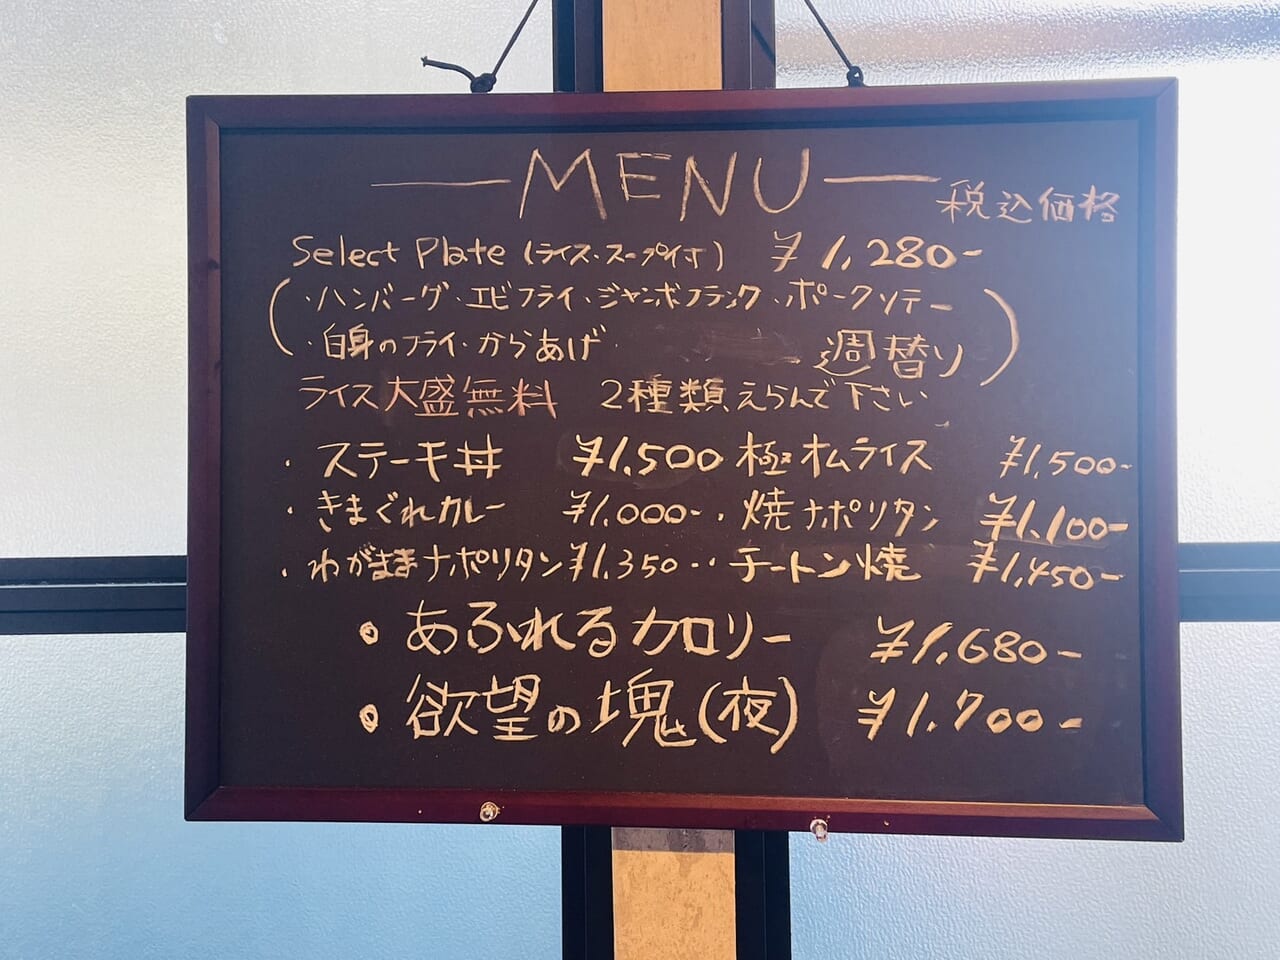 MENU 税込価格
Select Plate (ライス・スープ付) ¥1,280-
(・ハンバーグ・エビフライ・ジャンボフランク・ポークソテー
・白身のフライ・からあげ 週替り)
ライス大盛無料 2種類えらんで下さい
・ステーキ丼 ¥1,500 極オムライス ¥1,500-
・きまぐれカレー ¥1,000-・焼ナポリタン ¥1,100-
・わがままナポリタン ¥1,350-・チートン焼 ¥1,450-
・あふれるカロリー ¥1,680-
・欲望の塊(夜) ¥1,700-